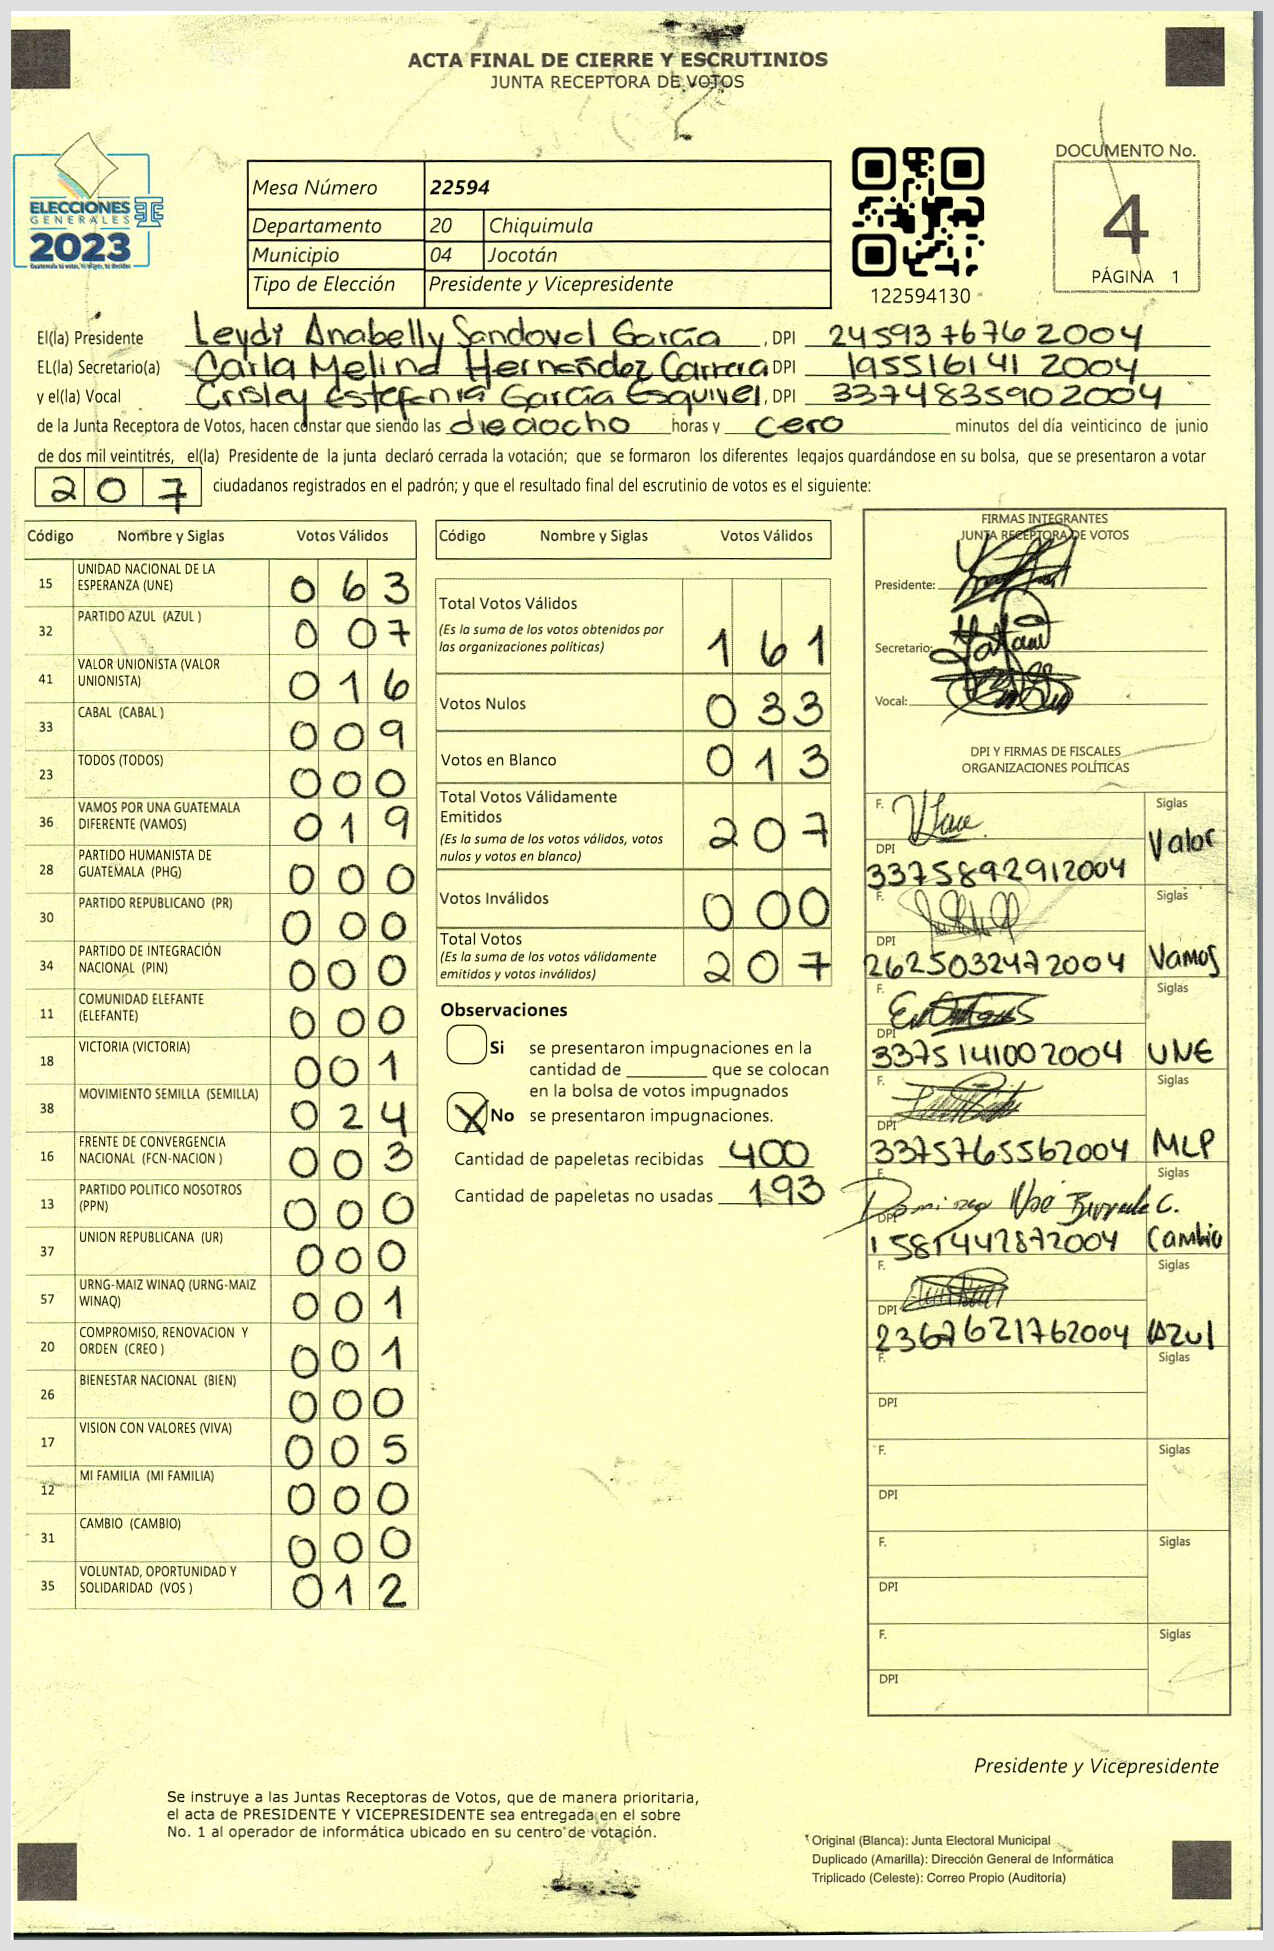 ACTA FINAL DE CIERRE Y ESCRUTINIOS
JUNTA RECEPTORA DE VOTOS
ELECCIONES
GENERALES
2023
Guatemala tú votas, tú eliges, tú decides
Mesa Número 22594
Departamento 20 Chiquimula
Municipio 04 Jocotán
Tipo de Elección Presidente y Vicepresidente
122594130
DOCUMENTO No.
4
PÁGINA 1
El(la) Presidente Leydi Anabelly Sandoval García, DPI 2459376762004
EL(la) Secretario(a) Carla Melind Hernéndez Carrera DPI 1955161412004
y el(la) Vocal Crisley Estefenia García Esquivel, DPI 3374835902004
de la Junta Receptora de Votos, hacen constar que siendo las dieciocho horas y cero minutos del día veinticinco de junio
de dos mil veintitrés, el(la) Presidente de la junta declaró cerrada la votación; que se formaron los diferentes legajos guardándose en su bolsa, que se presentaron a votar
207 ciudadanos registrados en el padrón; y que el resultado final del escrutinio de votos es el siguiente:
Código Nombre y Siglas Votos Válidos
15 UNIDAD NACIONAL DE LA ESPERANZA (UNE) 063
32 PARTIDO AZUL (AZUL ) 007
41 VALOR UNIONISTA (VALOR UNIONISTA) 016
33 CABAL (CABAL ) 009
23 TODOS (TODOS) 000
36 VAMOS POR UNA GUATEMALA DIFERENTE (VAMOS) 019
28 PARTIDO HUMANISTA DE GUATEMALA (PHG) 000
30 PARTIDO REPUBLICANO (PR) 000
34 PARTIDO DE INTEGRACIÓN NACIONAL (PIN) 000
11 COMUNIDAD ELEFANTE (ELEFANTE) 000
18 VICTORIA (VICTORIA) 001
38 MOVIMIENTO SEMILLA (SEMILLA) 024
16 FRENTE DE CONVERGENCIA NACIONAL (FCN-NACION ) 003
13 PARTIDO POLITICO NOSOTROS (PPN) 000
37 UNION REPUBLICANA (UR) 000
57 URNG-MAIZ WINAQ (URNG-MAIZ WINAQ) 001
20 COMPROMISO, RENOVACION Y ORDEN (CREO ) 001
26 BIENESTAR NACIONAL (BIEN) 000
17 VISION CON VALORES (VIVA) 005
12 MI FAMILIA (MI FAMILIA) 000
31 CAMBIO (CAMBIO) 000
35 VOLUNTAD, OPORTUNIDAD Y SOLIDARIDAD (VOS ) 012
Código Nombre y Siglas Votos Válidos
Total Votos Válidos 161
(Es la suma de los votos obtenidos por
las organizaciones políticas)
Votos Nulos 033
Votos en Blanco 013
Total Votos Válidamente
Emitidos 207
(Es la suma de los votos válidos, votos
nulos y votos en blanco)
Votos Inválidos 000
Total Votos 207
(Es la suma de los votos válidamente
emitidos y votos inválidos)
Observaciones
Si se presentaron impugnaciones en la
cantidad de ________ que se colocan
en la bolsa de votos impugnados
X No se presentaron impugnaciones.
Cantidad de papeletas recibidas 400
Cantidad de papeletas no usadas 193
FIRMAS INTEGRANTES
JUNTA RECEPTORA DE VOTOS
Presidente:
Secretario:
Vocal:
DPI Y FIRMAS DE FISCALES
ORGANIZACIONES POLÍTICAS
F. Siglas
DPI 3375892912004 Valor
F. Siglas
DPI 2625032472004 Vamos
F. Siglas
DPI 3375141002004 UNE
F. Siglas
DPI 3375765562004 MLP
F. Siglas
DPI 1581442872004 Cambio
F. Siglas
DPI 2367621762004 Azul
F. Siglas
DPI
F. Siglas
DPI
F. Siglas
DPI
F. Siglas
DPI
Presidente y Vicepresidente
Se instruye a las Juntas Receptoras de Votos, que de manera prioritaria,
el acta de PRESIDENTE Y VICEPRESIDENTE sea entregada en el sobre
No. 1 al operador de informática ubicado en su centro de votación.
Original (Blanca): Junta Electoral Municipal
Duplicado (Amarilla): Dirección General de Informática
Triplicado (Celeste): Correo Propio (Auditoría)